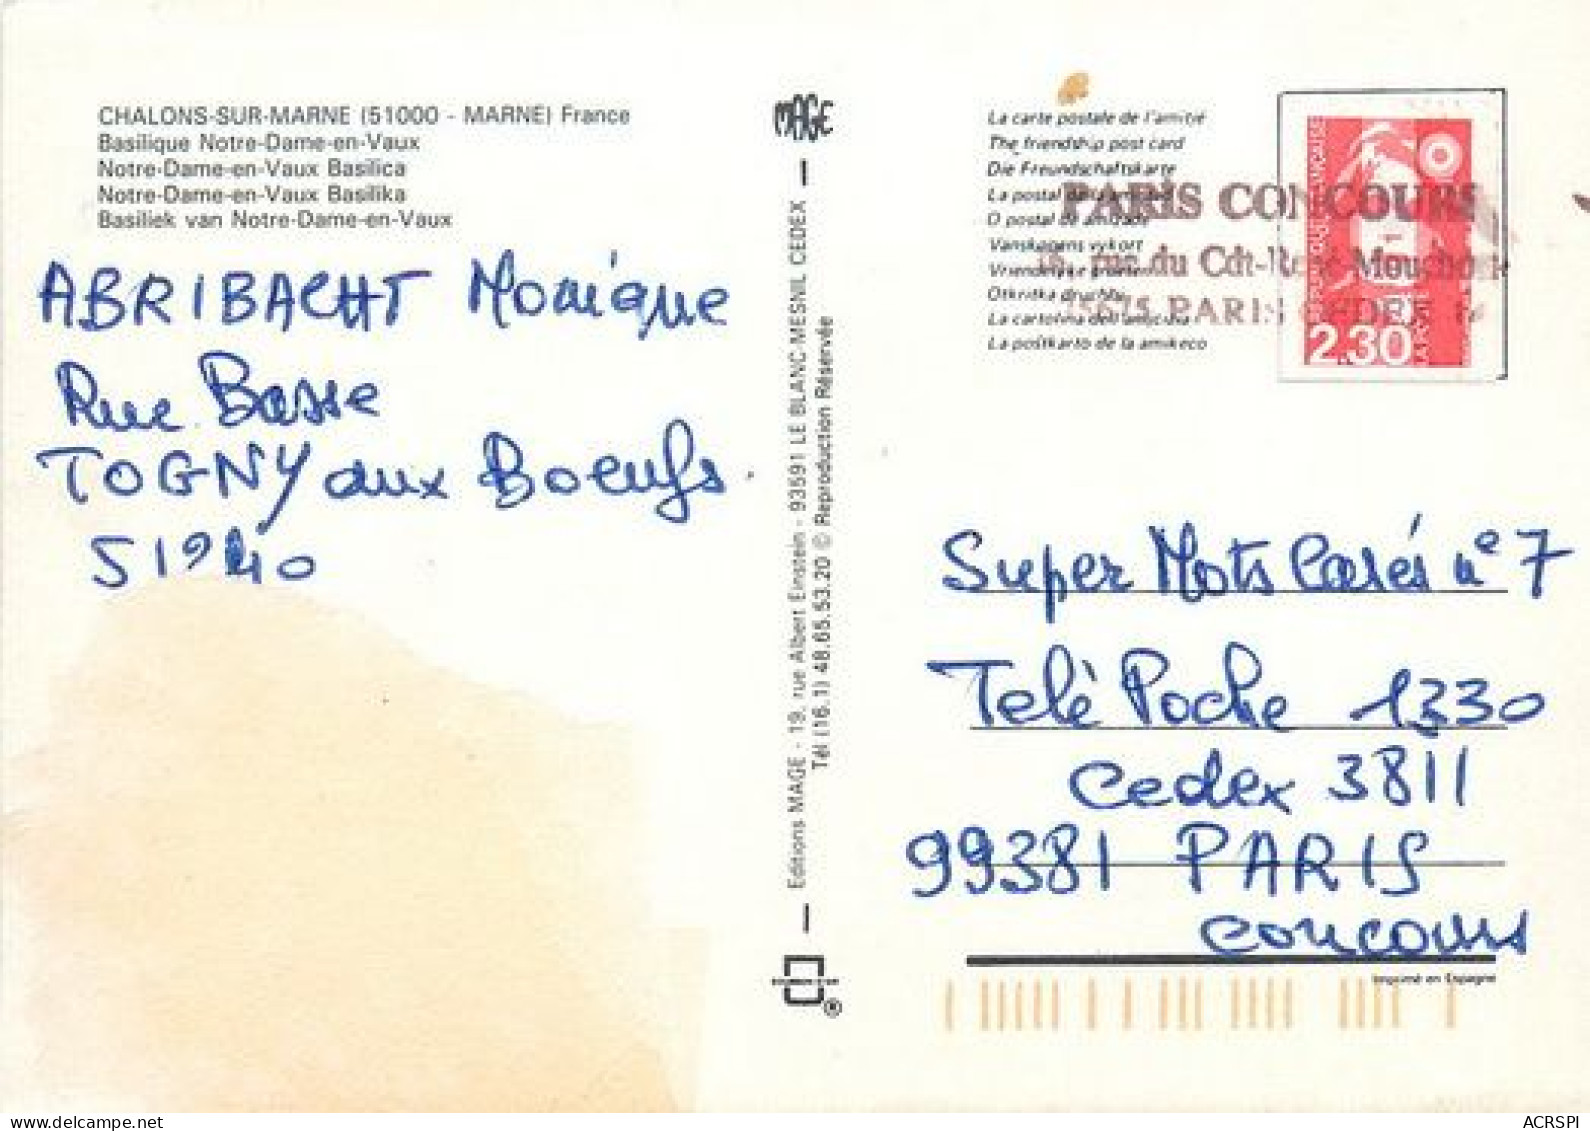 CHALONS-SUR-MARNE (51000 - MARNE) France
Basilique Notre-Dame-en-Vaux
Notre-Dame-en-Vaux Basilica
Notre-Dame-en-Vaux Basilika
Basiliek van Notre-Dame-en-Vaux
ABRIBACHT Monique
Rue Basse
TOGNY aux Boeufs
51240
MAGE
Editions MAGE - 19, rue Albert Einstein - 93591 LE BLANC-MESNIL CEDEX
Tél (16.1) 48.65.53.20 © Reproduction Réservée
La carte postale de l'amitié
The friendship post card
Die Freundschaftskarte
La postal
O postal de amizade
Vanskapens vykort
Vriendelijke groeten
Otkritka druzhby
La cartolina dell'amicizia
La poŝtkarto de la amikeco
PARIS CONCOURS
rue du Cdt-René Mouchotte
PARIS CEDEX 14
2,30
Super Mots Casés n° 7
Telé Poche 1330
Cedex 3811
99381 PARIS
concours
Imprimé en Espagne
®
ACRSPI